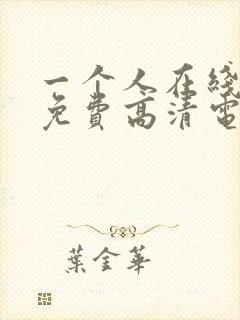 一个人在线
免费高清电
葉金華